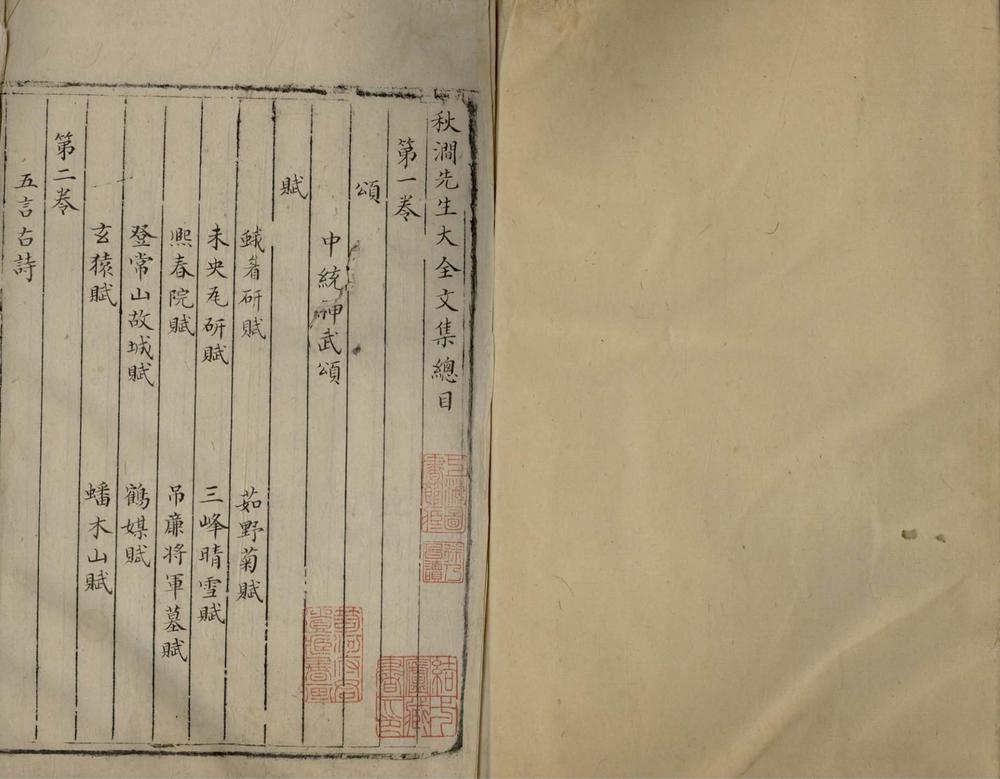 秋澗先生大全文集總目
第一卷
頌
中統神武頌
賦
研賦　茹野菊賦
未央瓦研賦　三峰晴雪賦
熙春院賦　吊廉将軍墓賦
登常山故城賦　鶴媒賦
玄猿賦　蟠木山賦
第二卷
五言古詩
上海圖書館藏
徐乃昌讀
結一廬藏書印